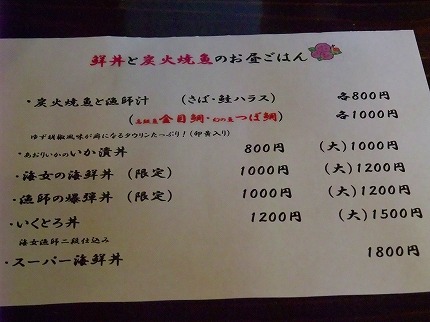 鮮丼と炭火焼魚のお昼ごはん
・炭火焼魚と漁師汁 (さば・鮭ハラス) 各800円
(高級魚金目鯛・幻の魚つぼ鯛) 各1000円
ゆず胡椒風味が病になるタウリンたっぷり!(卵黄入り)
・あおりいかのいか漬丼 800円 (大)1000円
・海女の海鮮丼 (限定) 1000円 (大)1200円
・漁師の爆弾丼 (限定) 1000円 (大)1200円
・いくとろ丼 1200円 (大)1500円
海女漁師二段仕込み
・スーパー海鮮丼 1800円